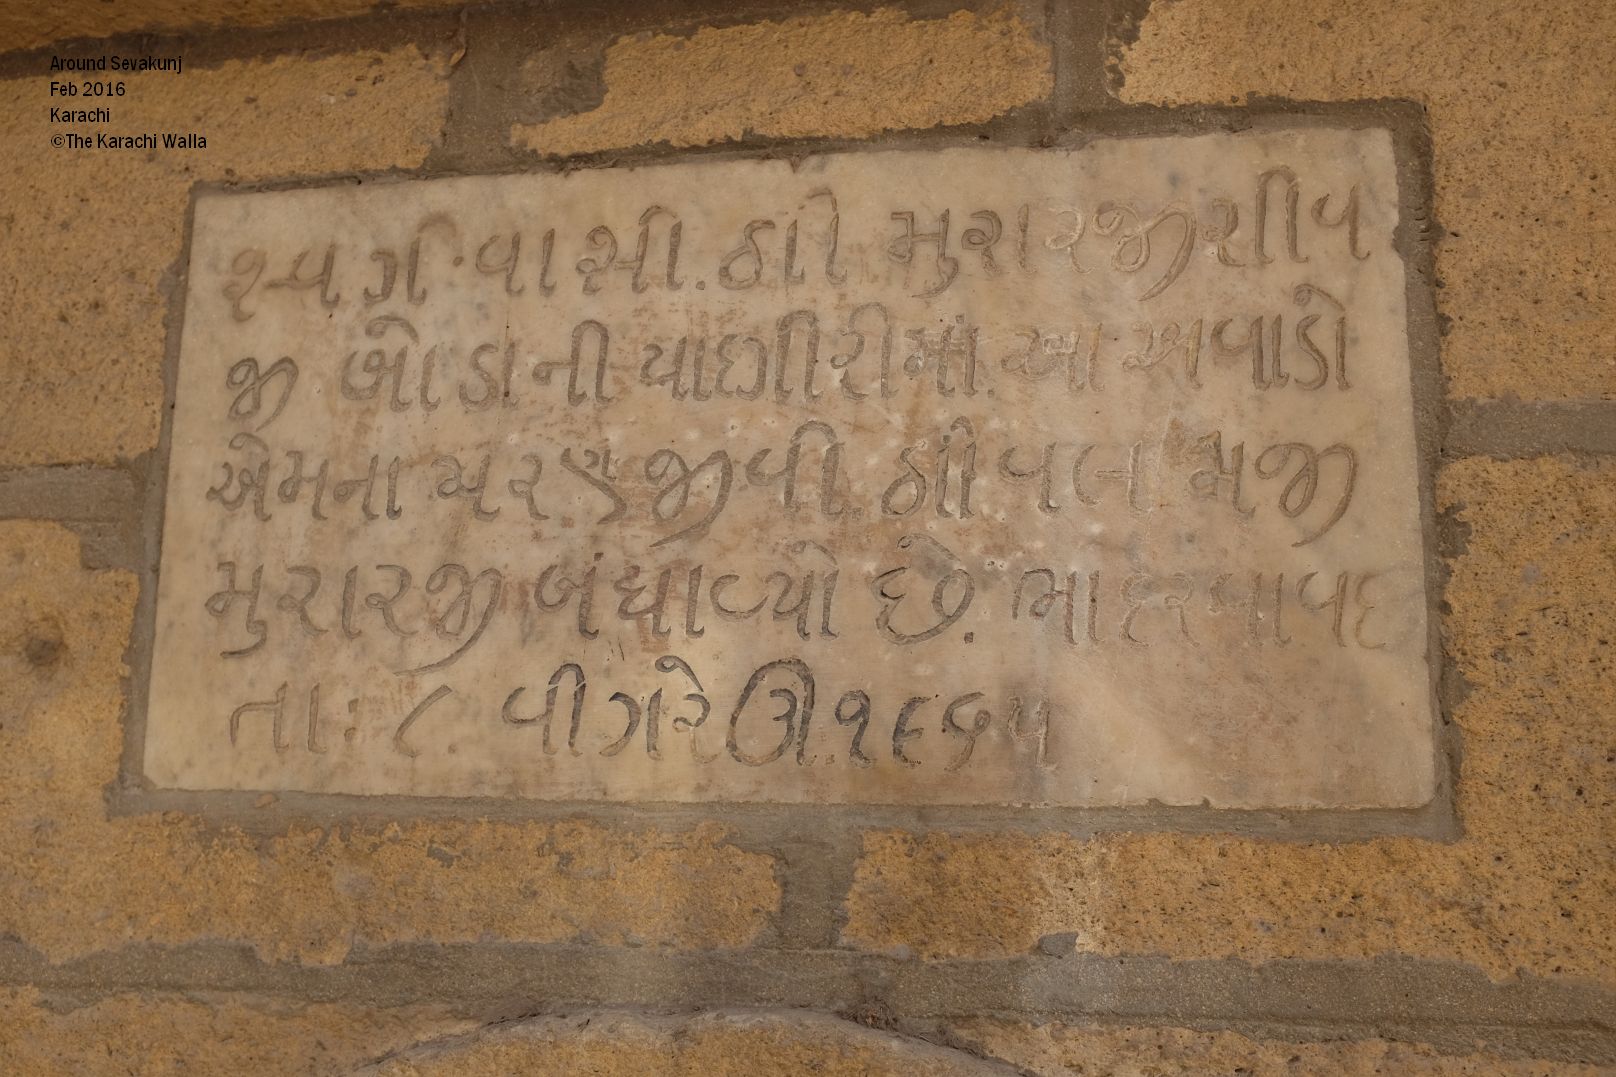 Around Sevakunj
Feb 2016
Karachi
©The Karachi Walla
સ્વર્ગવાસી. ઠા। મુરારજી શીવ
જી બોડાની યાદગીરીમાં. આ અવાડો
એમના ચરણજીવી. ઠા। વલમજી
મુરારજી બંધાવ્યો છે. ભાદરવા વદ
તા: ૮. વીગરે ઊ. ૧૯૬૫